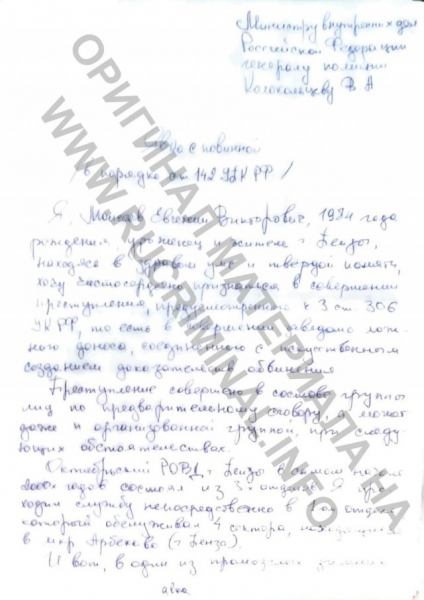 Министру внутренних дел
Российской Федерации
генералу полиции
Колокольцеву В А
Явка с повинной
/в порядке ст 142 УПК РФ/
Я, Евгений Викторович, 1984 года
рождения, уроженец и житель г Пензы,
находясь в здравом уме и твердой памяти,
хочу признаться в совершении
преступления, предусмотренного ч 3 ст. 306
УК РФ, то есть в совершении заведомо лож-
ного доноса, соединенного с искусственным
созданием доказательств обвинения
Преступление совершено в составе группы
лиц по предварительному сговору, а может
даже и организованной группой, при следу-
ющих обстоятельствах.
Октябрьский РОВД г Пензы в самом начале
2000х годов состоял из 3х Я про-
ходил службу непосредственно в
который обслуживал 4 сектора, находящиеся
в мкр Арбеково (г Пенза).
И вот, в один из
явка
ОРИГИНАЛ МАТЕРИАЛА НА
WWW.RUCRIMINAL.INFO